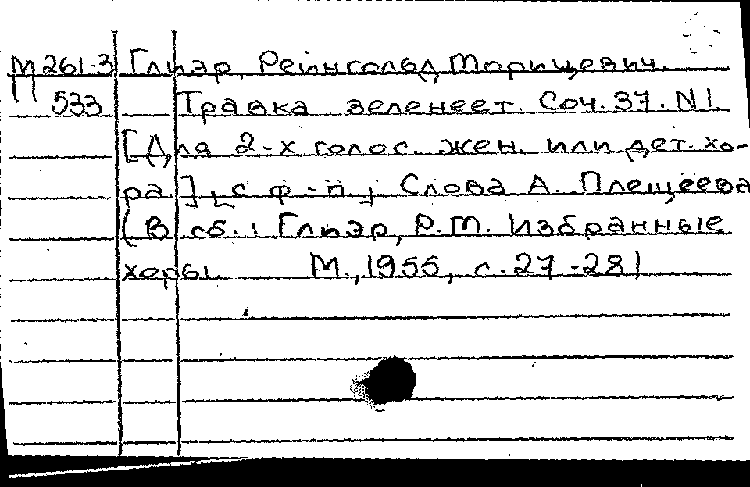 М261-3 Глиэр, Рейнгольд Морицевич.
П 533 Травка зеленеет. Соч. 37. N1.
[Для 2-х голос. жен. или дет. хо-
ра] с ф-п. Слова А. Плещеева
(В сб.: Глиэр, Р.М. Избранные
хоры. М., 1955, с. 27-28)